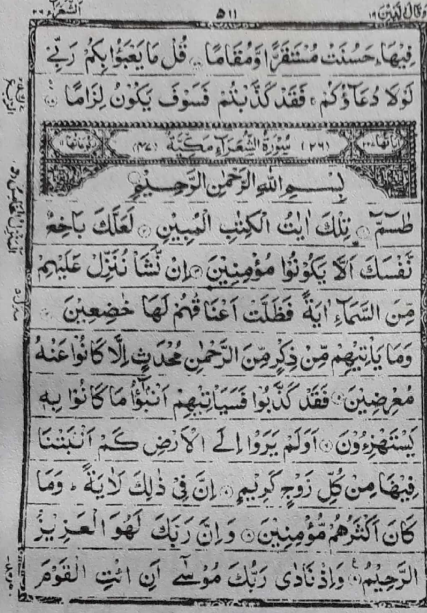 وقال الذين ١٩ ٥١١ الشعراء ٢٦
فِيْهَا ؕ حَسُنَتْ مُسْتَقَرًّا وَّمُقَامًا ۝ قُلْ مَا يَعْبَؤُا بِكُمْ رَبِّيْ
لَوْلَا دُعَآؤُكُمْ ۚ فَقَدْ كَذَّبْتُمْ فَسَوْفَ يَكُوْنُ لِزَامًا ۝
(٢٦) سُوْرَةُ الشُّعَرَآءِ مَكِّيَّةٌ (٤٧)
بِسْمِ اللّٰهِ الرَّحْمٰنِ الرَّحِيْمِ
طٰسٓمّٓ ۝ تِلْكَ اٰيٰتُ الْكِتٰبِ الْمُبِيْنِ ۝ لَعَلَّكَ بَاخِعٌ
نَّفْسَكَ اَلَّا يَكُوْنُوْا مُؤْمِنِيْنَ ۝ اِنْ نَّشَاْ نُنَزِّلْ عَلَيْهِمْ
مِّنَ السَّمَآءِ اٰيَةً فَظَلَّتْ اَعْنَاقُهُمْ لَهَا خٰضِعِيْنَ ۝
وَمَا يَاْتِيْهِمْ مِّنْ ذِكْرٍ مِّنَ الرَّحْمٰنِ مُحْدَثٍ اِلَّا كَانُوْا عَنْهُ
مُعْرِضِيْنَ ۝ فَقَدْ كَذَّبُوْا فَسَيَاْتِيْهِمْ اَنْۢبٰٓؤُا مَا كَانُوْا بِهٖ
يَسْتَهْزِءُوْنَ ۝ اَوَلَمْ يَرَوْا اِلَى الْاَرْضِ كَمْ اَنْۢبَتْنَا
فِيْهَا مِنْ كُلِّ زَوْجٍ كَرِيْمٍ ۝ اِنَّ فِيْ ذٰلِكَ لَاٰيَةً ؕ وَمَا
كَانَ اَكْثَرُهُمْ مُّؤْمِنِيْنَ ۝ وَاِنَّ رَبَّكَ لَهُوَ الْعَزِيْزُ
الرَّحِيْمُ ۝ وَاِذْ نَادٰى رَبُّكَ مُوْسٰٓى اَنِ ائْتِ الْقَوْمَ